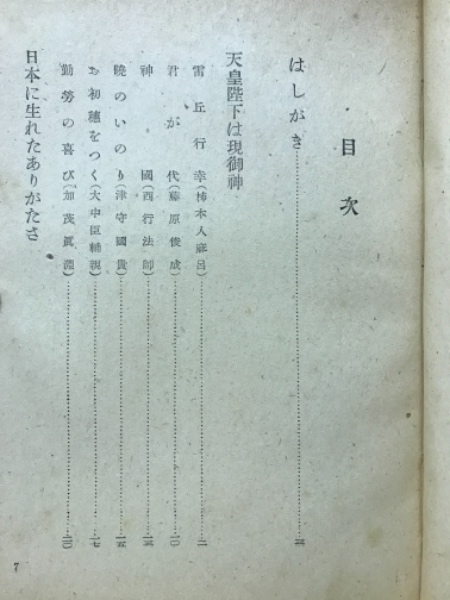 目次
はしがき……三
天皇陛下は現御神
雷丘行幸(柿本人麻呂)……二
君が代(藤原俊成)……一〇
神國(西行法師)……一三
曉のいのり(津守國貴)……一五
お初穗をつく(大中臣輔親)……一七
勤勞の喜び(加茂眞淵)……二〇
日本に生れたありがたさ
7